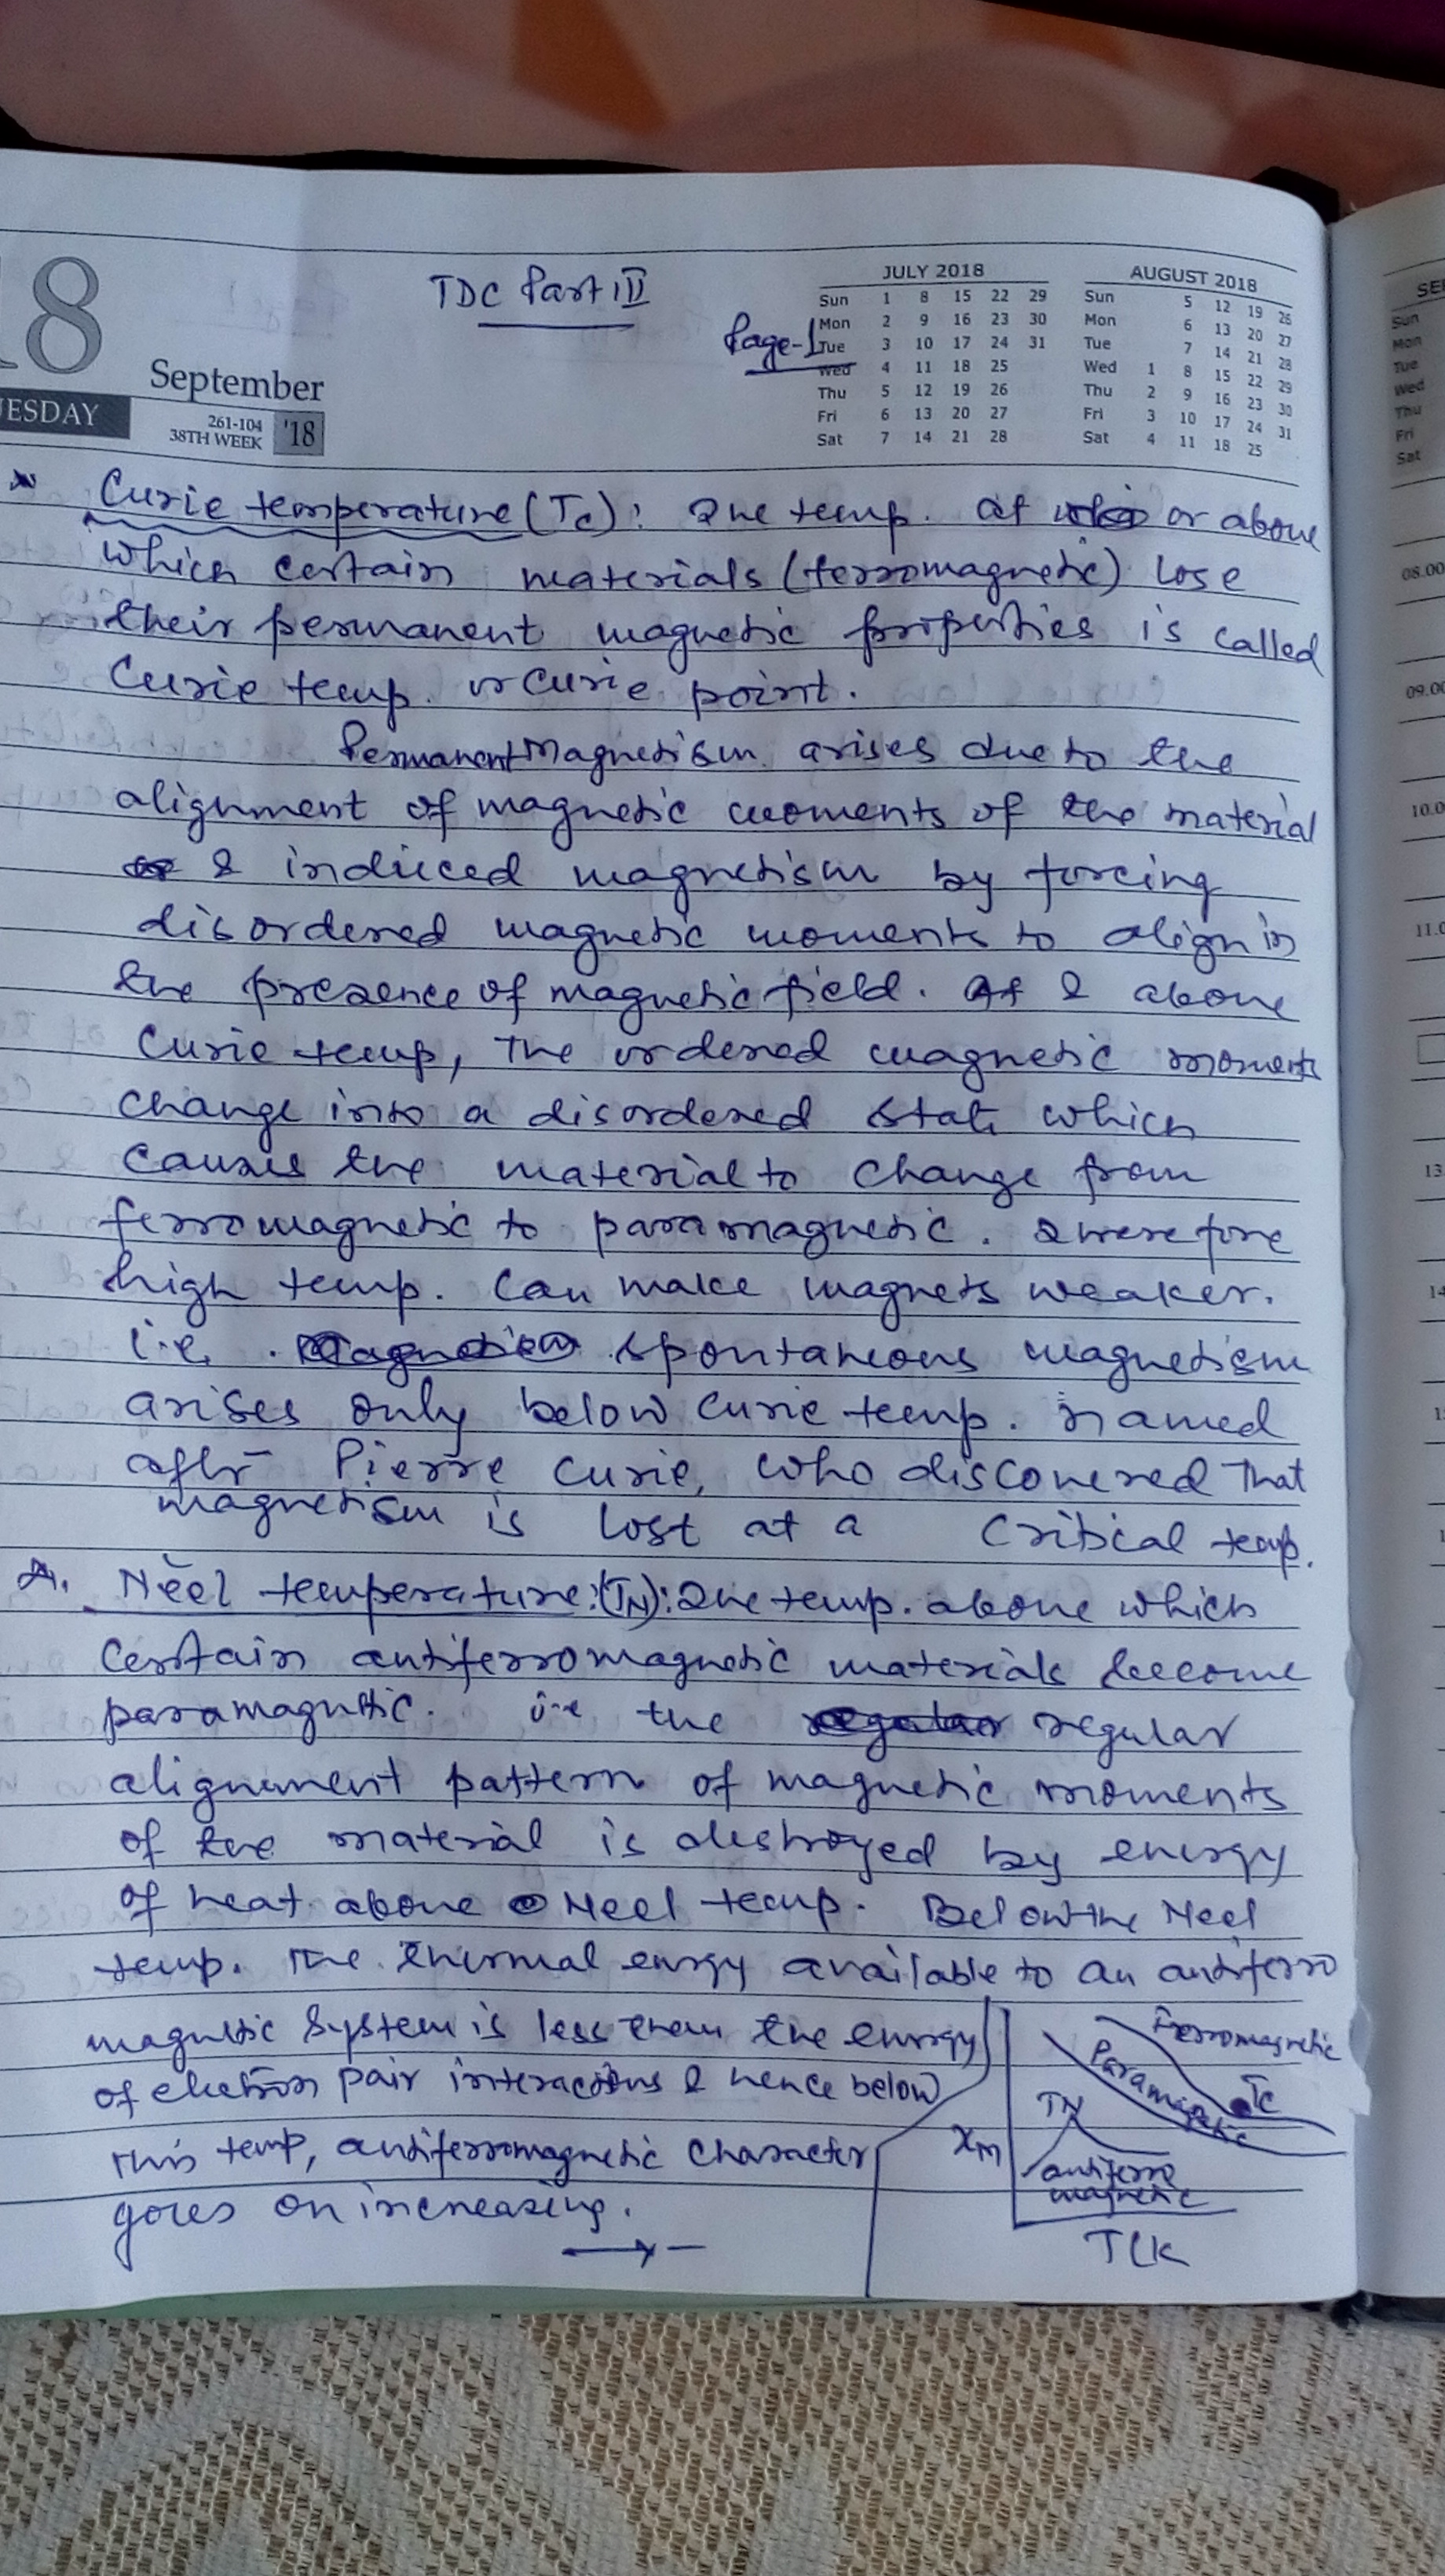 18
TUESDAY
September
261-104
38TH WEEK
'18
TDC Part III
Page-1
JULY 2018
Sun 1 8 15 22 29
Mon 2 9 16 23 30
Tue 3 10 17 24 31
Wed 4 11 18 25
Thu 5 12 19 26
Fri 6 13 20 27
Sat 7 14 21 28
AUGUST 2018
Sun 5 12 19 26
Mon 6 13 20 27
Tue 7 14 21 28
Wed 1 8 15 22 29
Thu 2 9 16 23 30
Fri 3 10 17 24 31
Sat 4 11 18 25
Curie temperature (Tc): The temp. at or above
which certain materials (ferromagnetic) lose
their permanent magnetic properties is called
Curie temp. or Curie point.
Permanent Magnetism arises due to the
alignment of magnetic moments of the material
& induced magnetism by forcing
disordered magnetic moments to align in
the presence of magnetic field. At & above
Curie temp, The ordered magnetic moments
change into a disordered state which
causes the material to change from
ferromagnetic to paramagnetic. Therefore
high temp. can make magnets weaker.
i.e. spontaneous magnetism
arises only below Curie temp. named
after Pierre Curie, who discovered that
magnetism is lost at a critical temp.
Neel temperature: (TN): The temp. above which
certain antiferromagnetic materials become
paramagnetic. i.e the regular
alignment pattern of magnetic moments
of the material is destroyed by energy
of heat above Neel temp. Below the Neel
temp. The thermal energy available to an antiferro
magnetic System is less them the energy
of electron pair interactions & hence below
This temp, antiferromagnetic character
goes on increasing.
Ferromagnetic
Paramagnetic
Tc
TN
Xm
antiferro
magnetic
T(K
SE
Sun
Mon
Tue
Wed
Thu
Fri
Sat
08.00
09.00
10.0
11.0
13
14